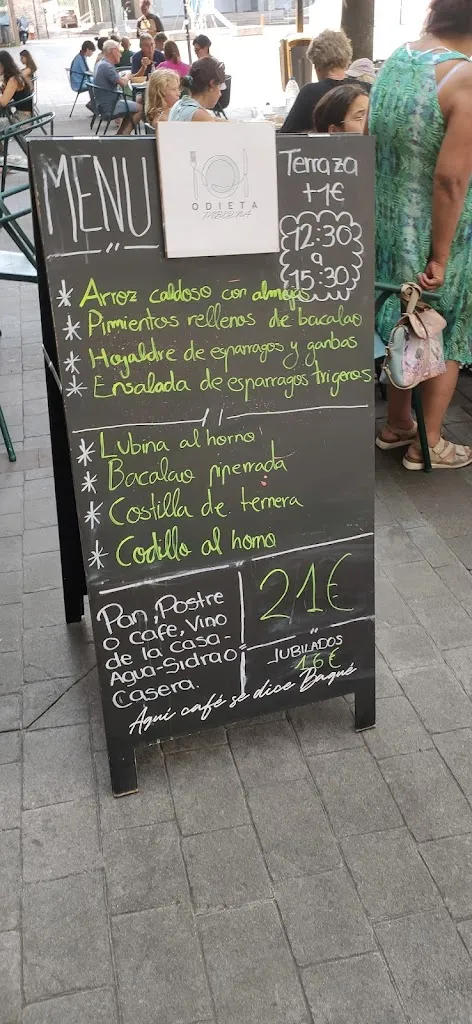 MENU
ODIETA
TABERNA
Terraza
+1€
12:30
a
15:30
* Arroz caldoso con almejas
* Pimientos rellenos de bacalao
* Hojaldre de esparragos y gambas
* Ensalada de esparragos trigeros
* Lubina al horno
* Bacalao piperrada
* Costilla de ternera
* Codillo al horno
Pan, Postre
o cafe, Vino
de la casa-
Agua-Sidra o
Casera.
21€
JUBILADOS
16€
Aquí café se dice Baqué